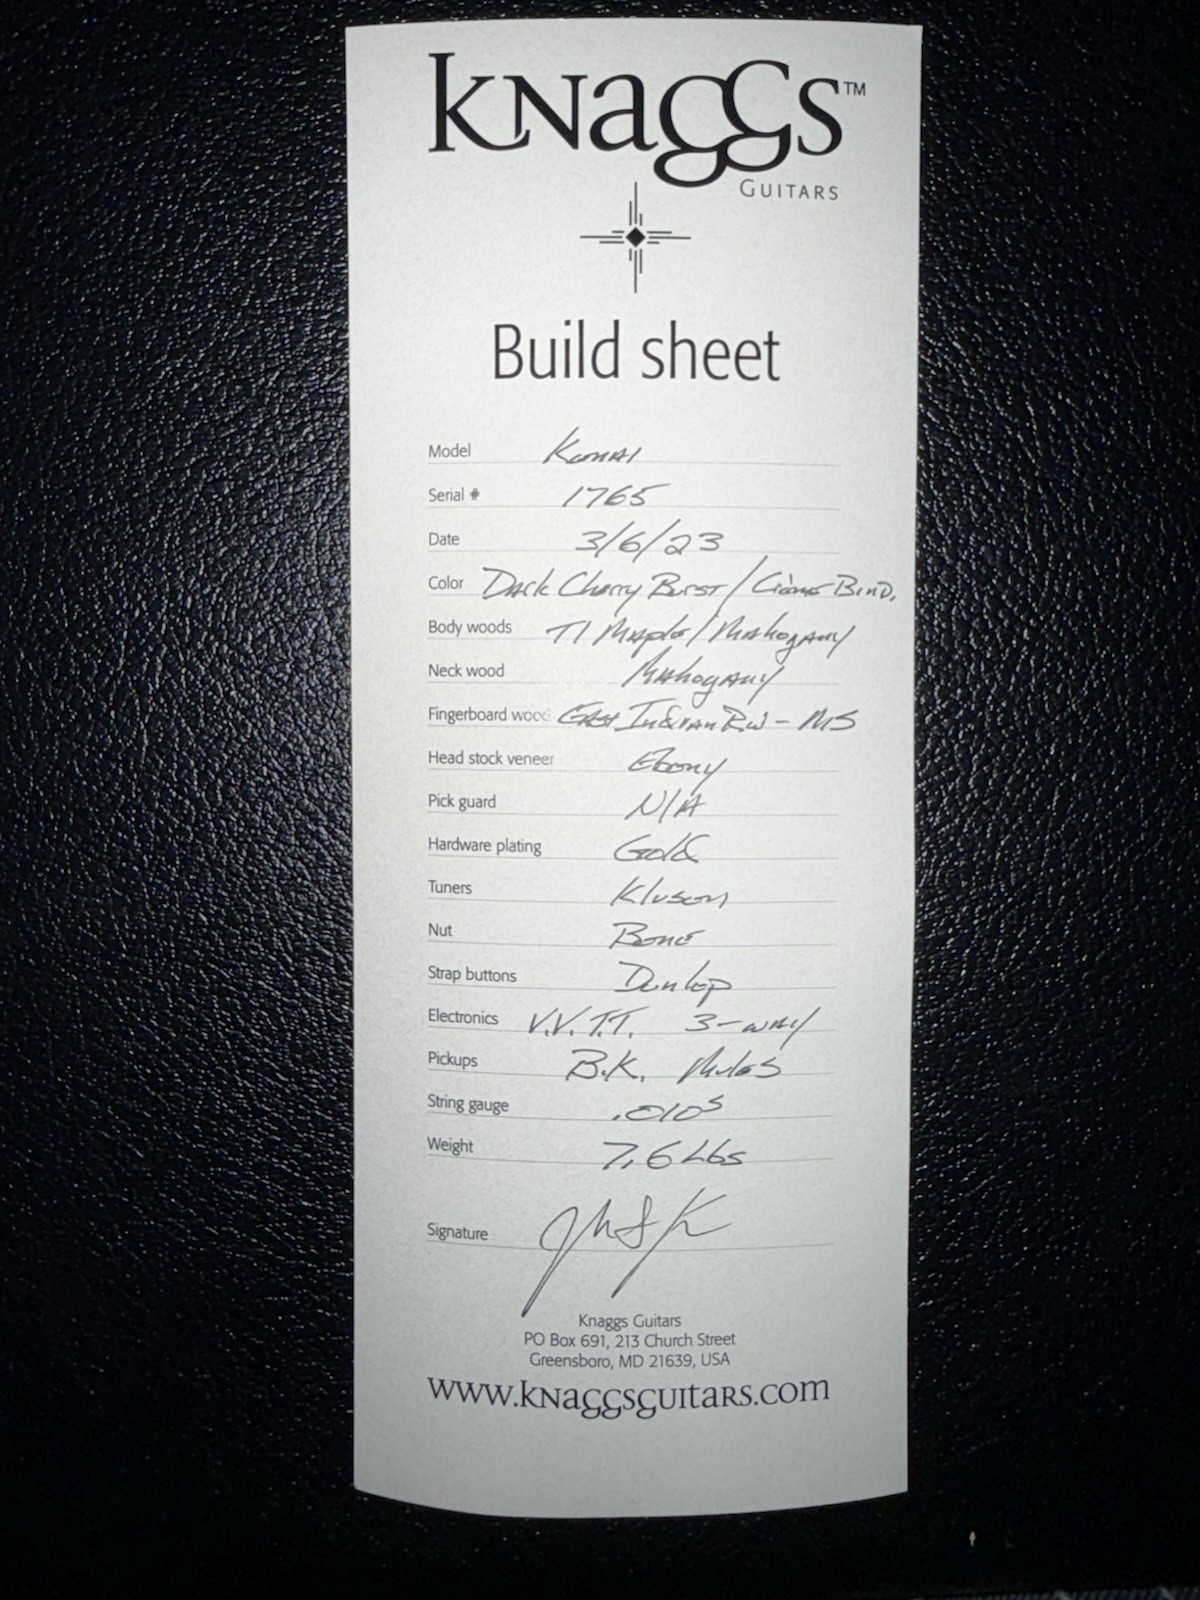 Knaggs™
Guitars
Build sheet
Model Kenai
Serial # 1765
Date 3/6/23
Color Dark Cherry Burst / Creme Bind.
Body woods T1 Maple / Mahogany
Neck wood Mahogany
Fingerboard wood East Indian RW - MS
Head stock veneer Ebony
Pick guard N/A
Hardware plating Gold
Tuners Kluson
Nut Bone
Strap buttons Dunlop
Electronics V.V. T.T. 3-way
Pickups B.K. Mules
String gauge .010s
Weight 7.6 Lbs
Signature
Knaggs Guitars
PO Box 691, 213 Church Street
Greensboro, MD 21639, USA
www.knaggsguitars.com